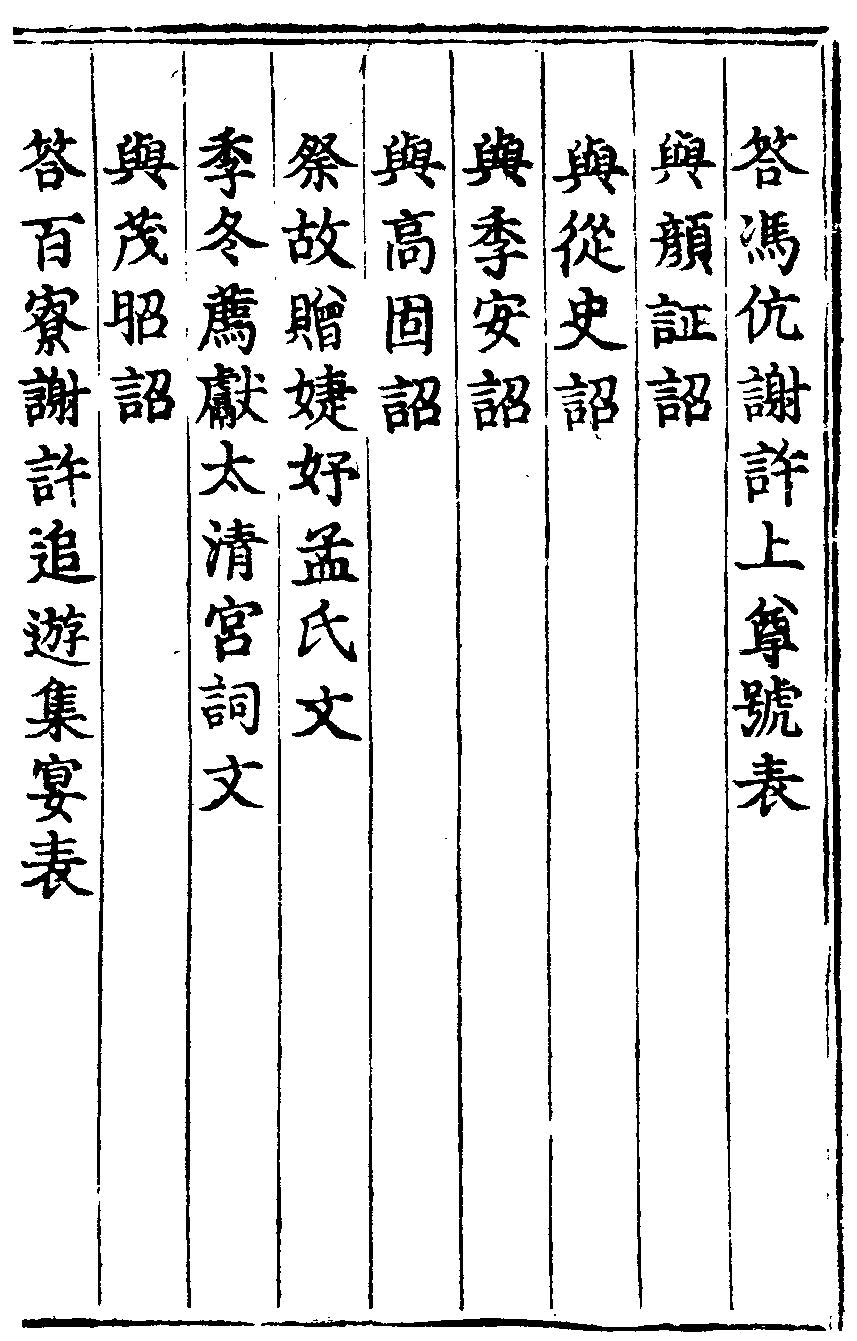 答馮伉謝許上尊號表
與顏証詔
與從史詔
與季安詔
與高固詔
祭故贈婕妤孟氏文
季冬薦獻太清宮詞文
與茂昭詔
答百寮謝許追遊集宴表